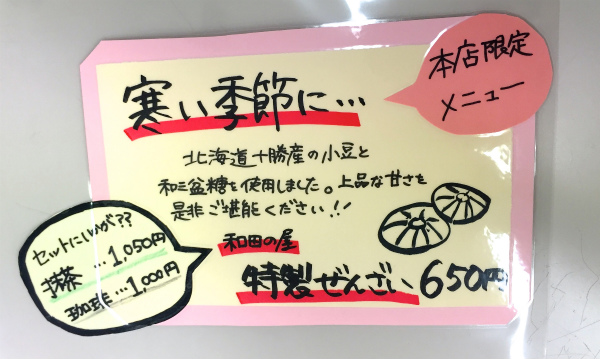 本店限定
メニュー
寒い季節に…
北海道十勝産の小豆と
和三盆糖を使用しました。上品な甘さを
是非ご堪能ください!!
和田の屋
特製ぜんざい 650円
セットにいかが??
抹茶…1,050円
珈琲…1,000円